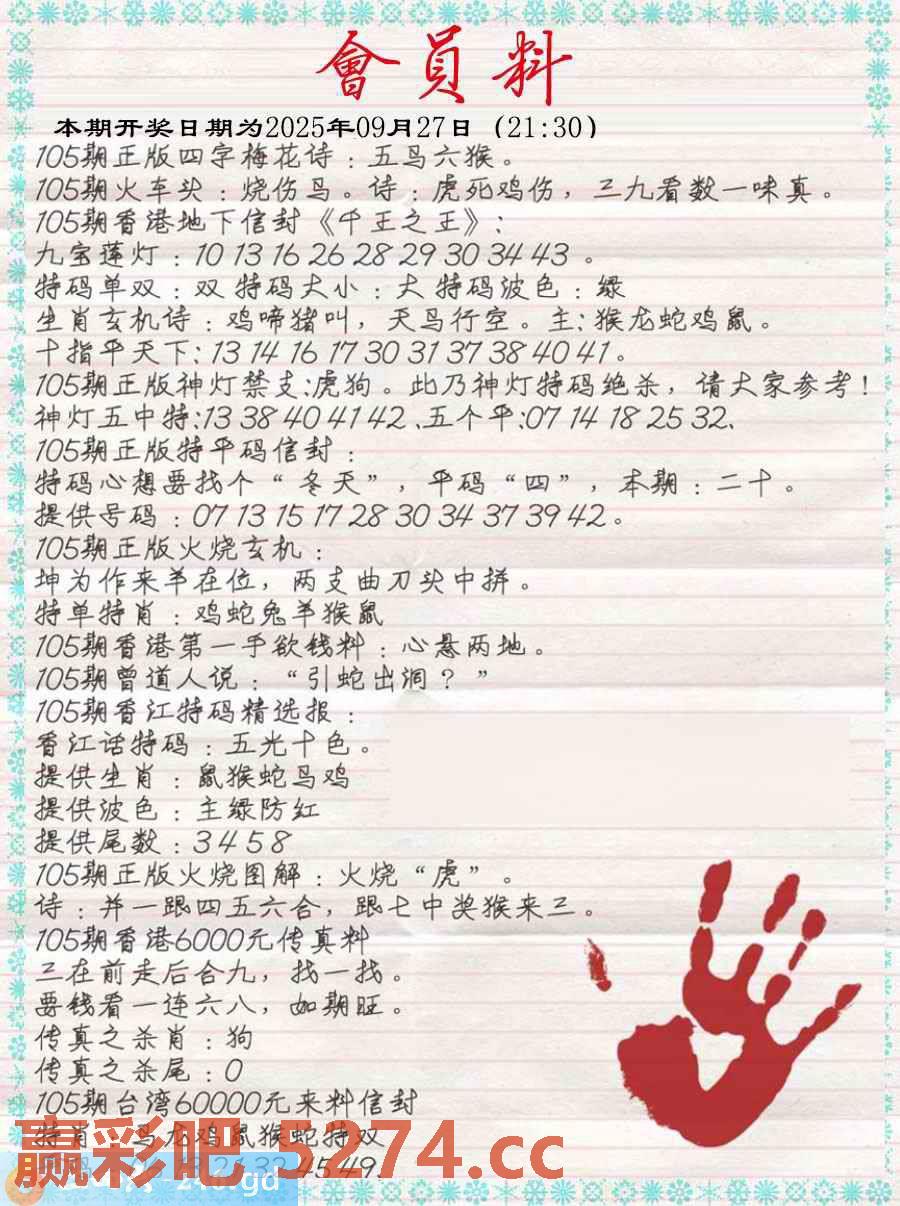 會員料
本期开奖日期为2025年09月27日（21:30）
105期正版四字梅花诗：五鸟六猴。
105期火车头：烧伤鸟。诗：虎死鸡伤，三九看数一味真。
105期香港地下信封《千王之王》：
九宝莲灯：10 13 16 26 28 29 30 34 43 。
特码单双：双 特码大小：大 特码波色：绿
生肖玄机诗：鸡啼猪叫，天鸟行空。主：猴龙蛇鸡鼠。
十指平天下：13 14 16 17 30 31 37 38 40 41。
105期正版神灯禁支：虎狗。此乃神灯特码绝杀，请大家参考！
神灯五中特：13 38 40 41 42 、五个平：07 14 18 25 32、
105期正版特平码信封：
特码心想要找个“冬天”，平码“四”，本期：二十。
提供号码：07 13 15 17 28 30 34 37 39 42。
105期正版火烧玄机：
坤为作来羊在位，两支曲刀头中拼。
特单特肖：鸡蛇兔羊猴鼠
105期香港第一手欲钱料：心悬两地。
105期曾道人说：“引蛇出洞？”
105期香江特码精选报：
香江话特码：五光十色。
提供生肖：鼠猴蛇鸟鸡
提供波色：主绿防红
提供尾数：3 4 5 8
105期正版火烧图解：火烧“虎”。
诗：并一跟四五六合，跟七中奖猴来三。
105期香港6000元传真料
三在前走后合九，找一找。
要钱看一连六八，如期旺。
传真之杀肖：狗
传真之杀尾：0
105期台湾60000元来料信封
特肖：鸟龙鸡鼠猴蛇特双
赢彩吧.5274.cc
45 49